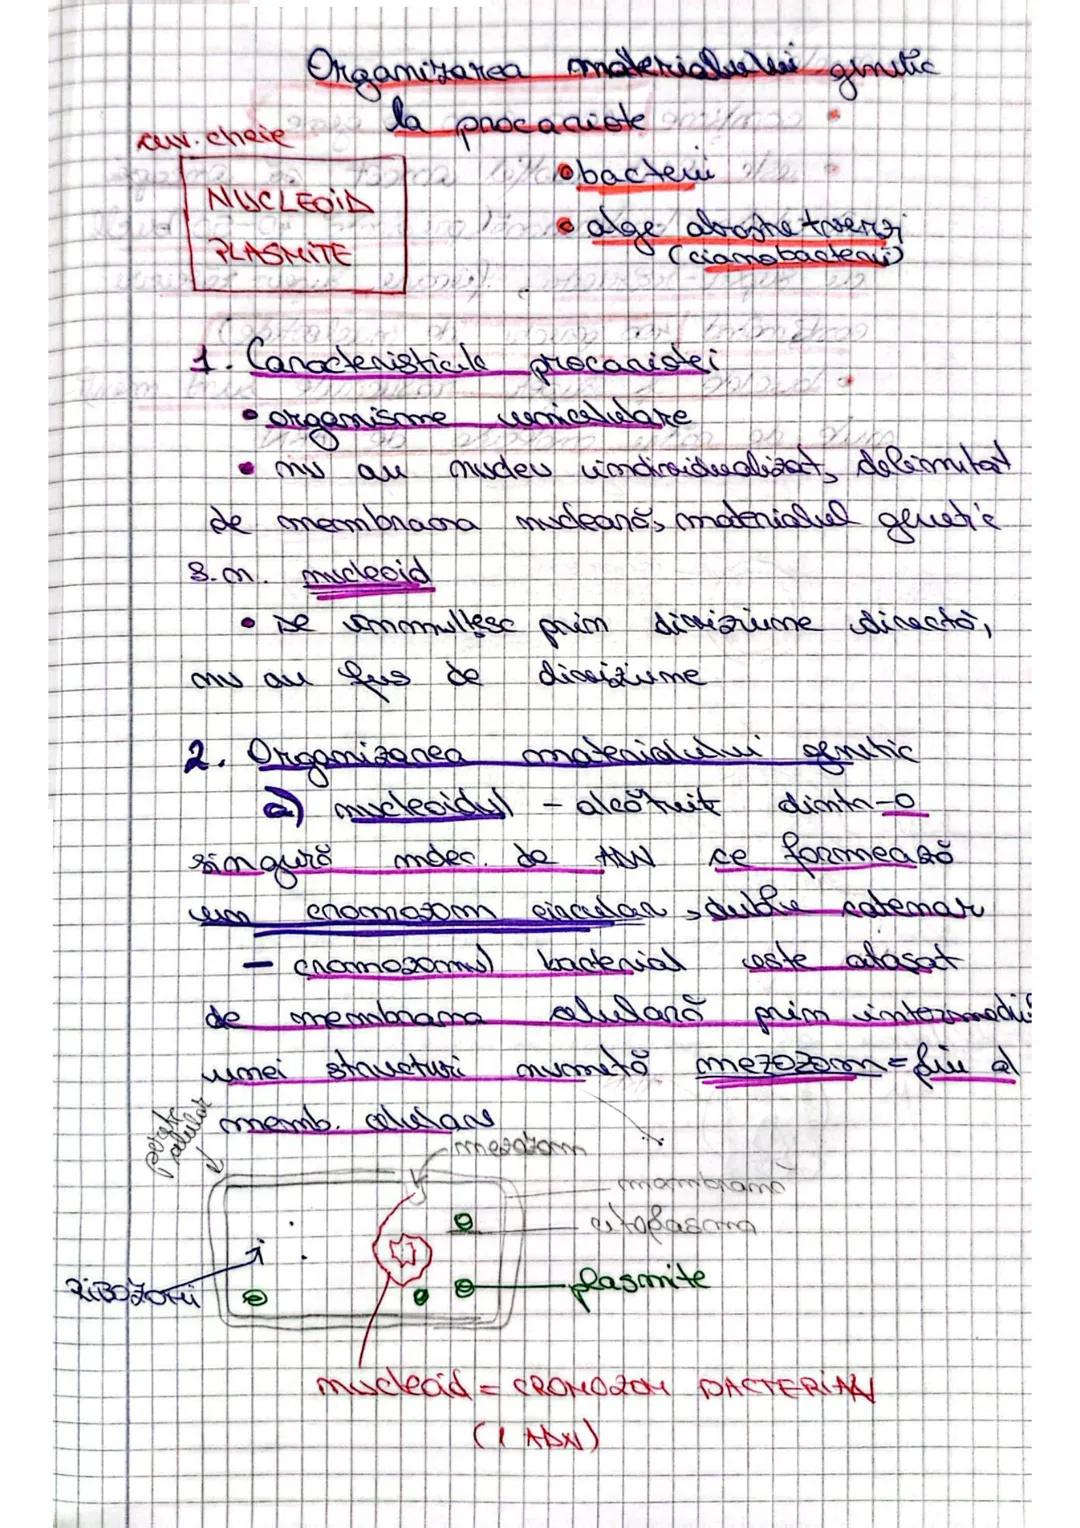 Organizarea materialului genetic
la procariote
cuv. cheie
NUCLEOID
PLASMITE
• bacterii
• alge albastre-verzi
(cianobacterii)
1. Caracteristicile procariotei
• organisme unicelulare
• nu au nucleu individualizat, delimitat
de membrana nucleară, materialul genetic
s.n. nucleoid
• se înmulțesc prin diviziune directă,
nu au fus de diviziune
2. Organizarea materialului genetic
a) nucleoidul - alcătuit dintr-o
singură molec. de ADN ce formează
un cromozom circular, dublu catenar
- cromozomul bacterial este atașat
de membrana celulară prin intermediul
unei structuri numită mezozom = fiu al
memb. celulare
perete celular
mezozom
membrană
citoplasma
RIBOZOMI
plasmite
nucleoid = CROMOZOM BACTERIAN
(1 ADN)